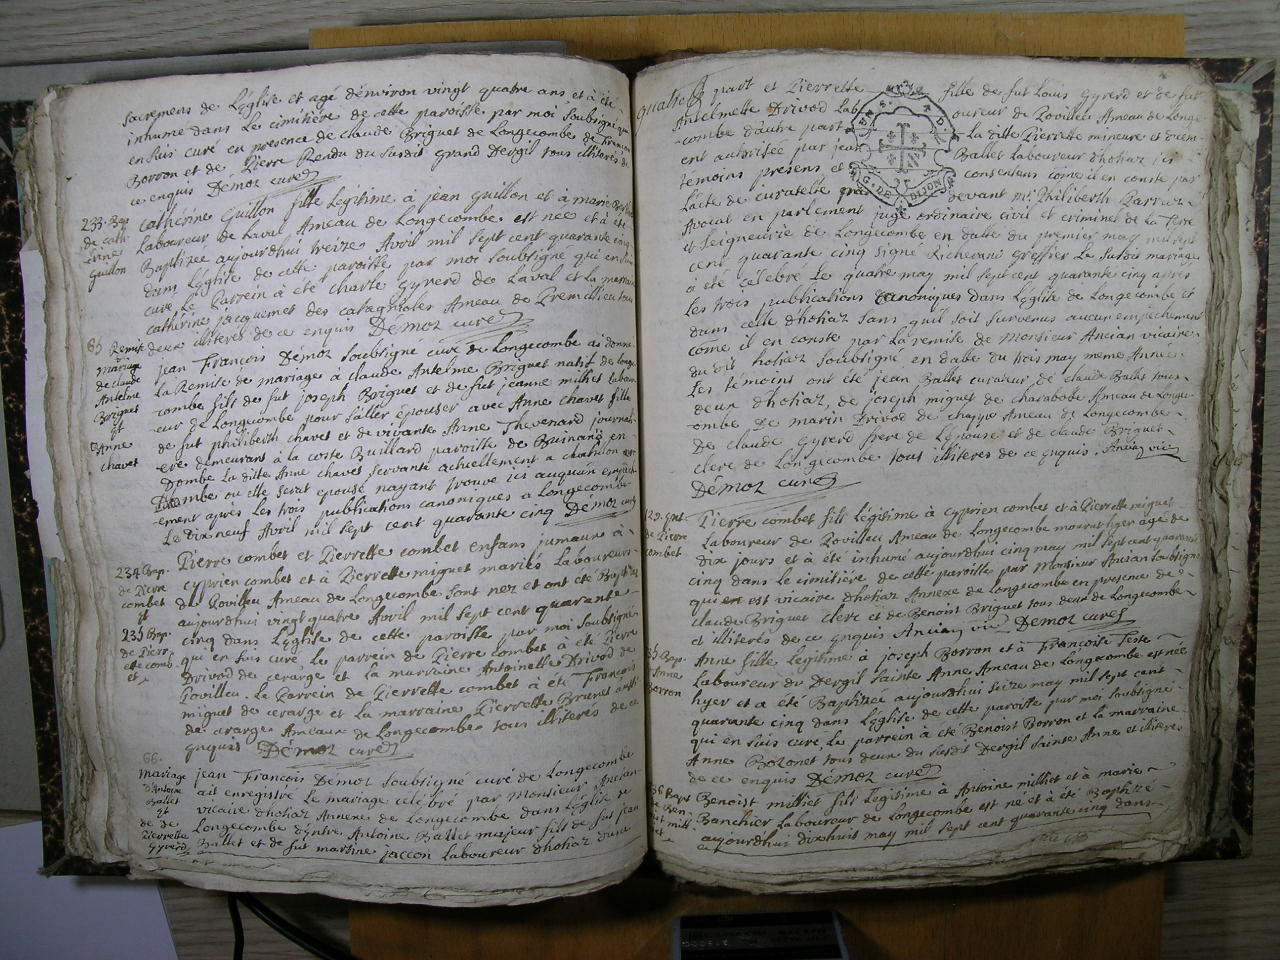 sacremens de Leglise et agé denviron vingt quatre ans et a été
inhumé dans Le cimitière de cette paroisse par moi soubsigné qui
en suis curé en presence de claude Briguet de Longecombe de François
Borron et de Pierre Rendu du susdit grand Dergil tous illiterés de
ce enquis Démoz curé
233. Bap.
de cath
erine
Guillon
catherine Guillon fille Légitime à jean Guillon et à marie
Laboureur de Laval Ameau de Longecombe est née et a été
Baptizée aujourdhui treize Avril mil sept cent quarante cinq
dans Léglise de cette paroisse par moi soubsigné qui en suis
curé Le Parrein à été charle Gyverd de Laval et La marraine
catherine jacquemet des catagnoles Ameau de Premillieu tous
deux illiterés de ce enquis Démoz curé
85 Remise
de
mariage
de claude
Antelme
Briguet
et
Anne
chavet
jean François Démoz soubsigné curé de Longecombe ai donné
La Remise de mariage à claude Antelme Briguet natif de Longe
combe fils de fut joseph Briguet et de fut jeanne milliet Labou
eur de Longecombe pour saller épouser avec Anne chavet fille
de fut philiberth chavet et de vivante Anne Thevenard journali
ere demeurant à la coste Buillard paroisse de en
Dombe La ditte Anne chavet servante actuellement a chatillon
Dombe ou elle serat epousé nayant trouvé ici aucun empêch
ement après Les trois publications canoniques a Longecombe
Le dix neuf Avril mil sept cent quarante cinq Démoz curé
234 Bap.
de Pierre
combet
et
235 Bap.
de Pierr
ette comb
et
Pierre combet et Pierrette combet enfans jumeaux à
cyprien combet et à Pierrette miguet mariés Laboureurs
de Rovilleu Ameau de Longecombe sont nez et ont été Baptizés
aujourdhui vingt quatre Avril mil sept cent quarante
cinq dans Léglise de cette paroisse par moi soubsigné
qui en suis curé Le parrein de Pierre combet à été Pierre
Drivod de cerarge et La marraine Antoinette Drivod de
Rovilleu. Le Parrein de Pierrette combet à été François
miguet de cerarge et La marraine Pierrette Brunet aussi
de cerarge Ameaux de Longecombe tous illiterés de ce
enquis Démoz curé
66.
mariage
d'Antoine
Ballet
et
de
Pierrette
Gyverd
jean François Démoz soubsigné curé de Longecombe
ait enregistré Le mariage celebré par Monsieur Ancian
vicaire dhotiaz Annexe de Longecombe dans Léglise
de Longecombe dentre Antoine Ballet majeur fils de fut jean
Ballet et de fut martine jaccon Laboureur dhotiaz d'une
quatre
part et Pierrette fille de fut Louis Gyverd et de fut
Antelmette Drivod Lab oureur de Rovilleu Ameau de Longe
combe d'autre part La ditte Pierrette mineure et duem
ent autorisée par jean Ballet Laboureur dhotiaz ici
témoins presens et consentens come il en conste par
Lacte de curatelle devant mr. Philiberth
Avocat en parlement juge ordinaire civil et criminel de La Terre
et Seigneurie de Longecombe en datte du premier may mil sept
cent quarante cinq signé Richerand Greffier La susdit mariage
à été celebré Le quatre may mil sept cent quarante cinq après
Les trois publications canoniques dans Léglise de Longecombe et
dans celle dhotiaz sans quil soit survenus aucun empêchement
come il en conste par La remise de Monsieur Ancian vicaire
du dit hotiaz soubsigné en datte du trois may meme Année
Les témoins ont été jean Ballet curateur, de claude Ballet tous
deux dhotiaz, de joseph miguet de charabode Ameau de Longec
ombe de marin Drivod de chappe Ameau de Longecombe
De claude Gyverd frere de Lépouse et de claude Briguet
clerc de Longecombe tous illiterés de ce enquis. Ancian vic.
Démoz curé
129. ent.
de Pierre
combet
Pierre combet fils Légitime à cyprien combet et à Pierrette miguet
Laboureur de Rovilleu Ameau de Longecombe mourut hyer agé de
dix jours et à été inhumé aujourdhui cinq may mil sept cent quarante
cinq dans Le cimitière de cette paroisse par Monsieur Ancian soubsigné
qui en est vicaire dhotiaz Annexe de Longecombe en presence de
claude Briguet clerc et de Benoist Briguet tous deux de Longecombe
et illiterés de ce enquis Ancian vic. Démoz curé
Bap.
Anne
Borron
Anne fille Légitime à joseph Borron et à Françoise Teste
Laboureur du Dergil Sainte Anne Ameau de Longecombe est née
hyer et a été Baptizée aujourdhui seize may mil sept cent
quarante cinq dans Léglise de cette paroisse par moi soubsigné
qui en suis curé, La parrein à été Benoist Borron et La marraine
Anne Bozonet tous deux du susdit Dergil Sainte Anne et illiterés
de ce enquis Démoz curé
Bapt
de Ben
oist mill
et
Benoist milliet fils Légitime à Antoine milliet et à marie
Banchier Laboureur de Longecombe est né et à été Baptizé
aujourdhui dixhuit may mil sept cent quarante cinq dans
G. DE DIJON